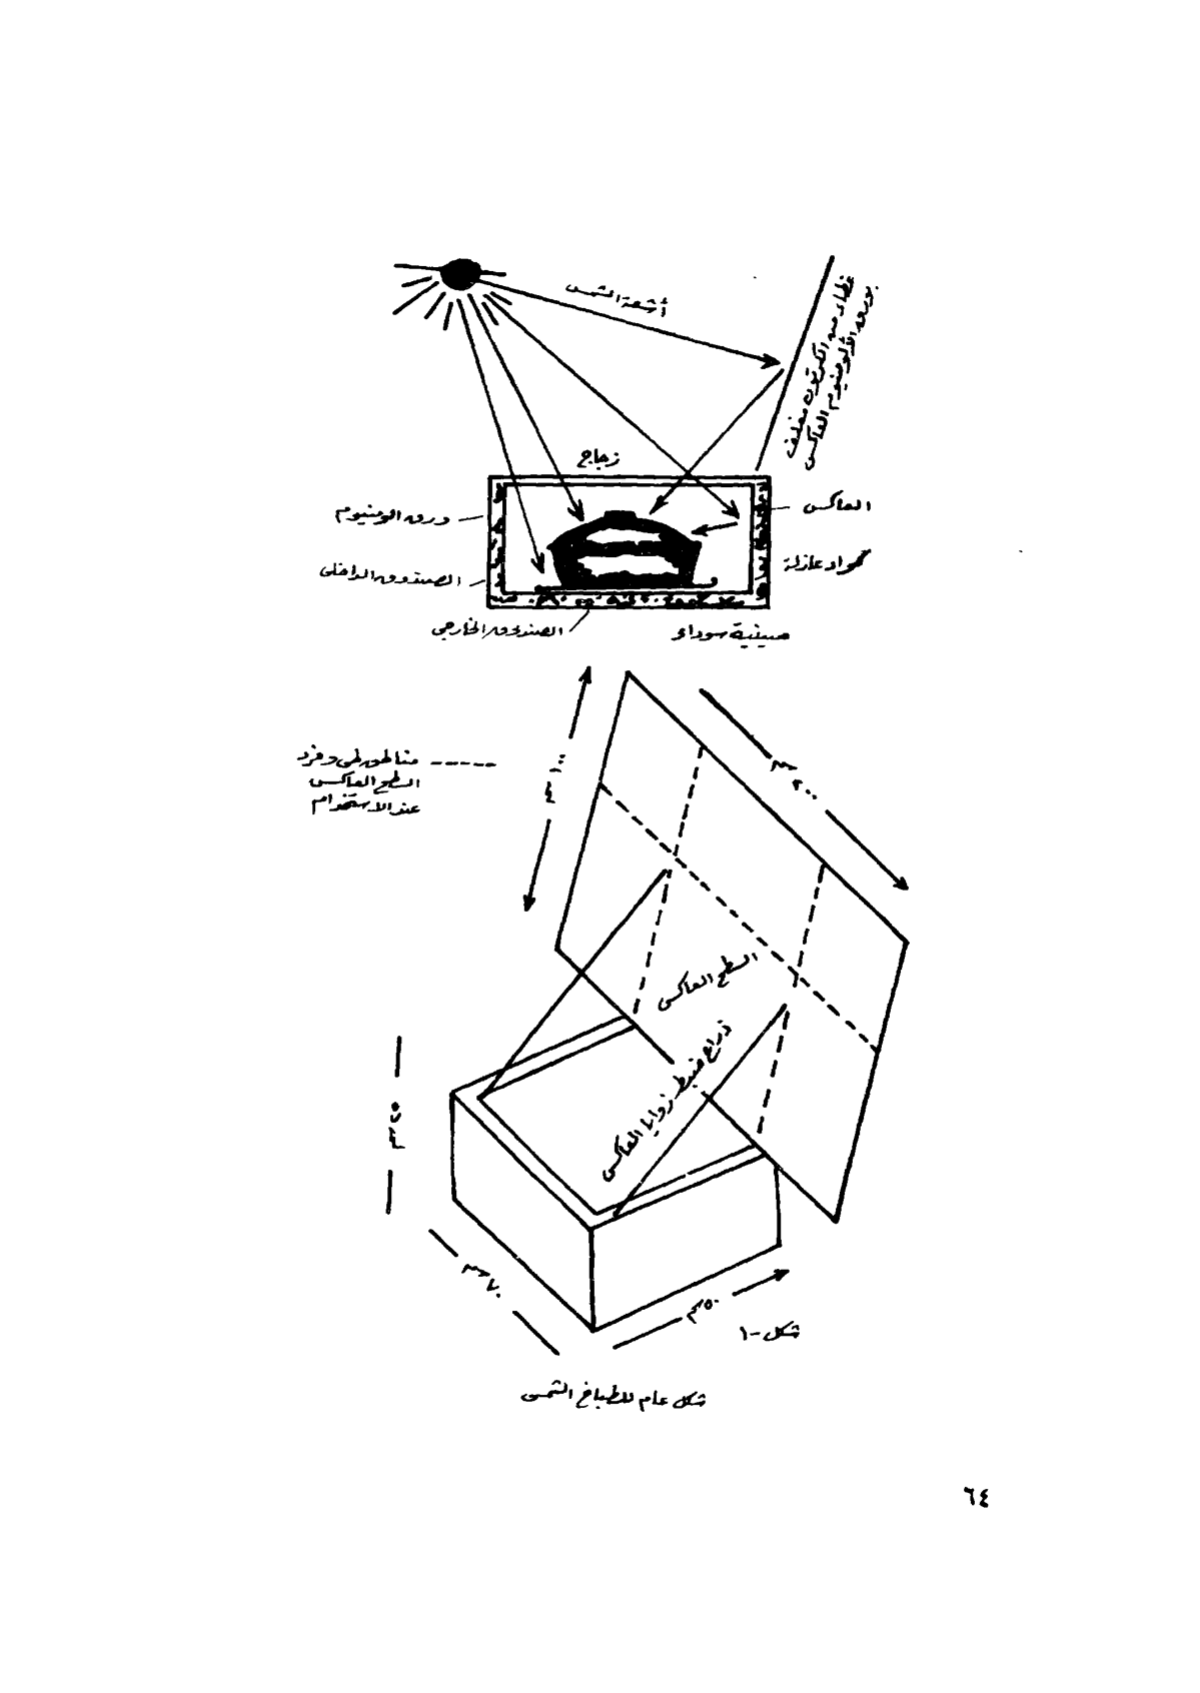 أشعة الشمس
غطاء من الكرتون مغلف
بورق الألومنيوم العاكس
زجاج
العاكس
ورق الومنيوم
مواد عازلة
الصندوق الداخلى
الصندوق الخارجى
صينية سوداء
١٠٠ سم
٢٠٠ سم
مناطق طى وفرد
السطح العاكس
عند الاستخدام
السطح العاكس
ذراع ضبط زوايا العاكس
سم
٧٠ سم
٥٠ سم
شكل -١
شكل عام للطباخ الشمسى
٦٤